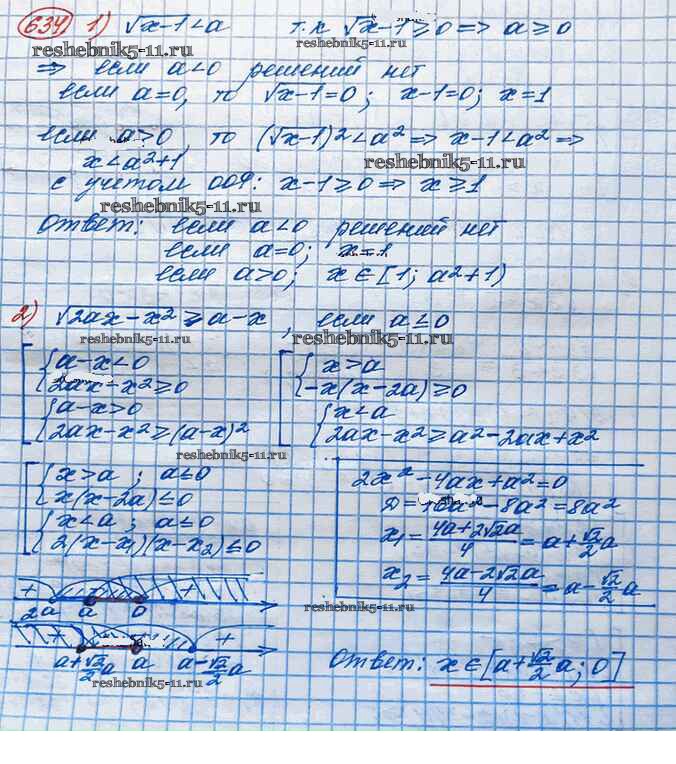 634 1) √x-1 < a т.к √x-1 ≥ 0 => a ≥ 0
reshebnik5-11.ru reshebnik5-11.ru
=> если a<0 решений нет
если a=0, то √x-1=0; x-1=0; x=1
если a>0, то (√x-1)² < a² => x-1 < a² =>
x < a²+1 reshebnik5-11.ru
с учетом ОДЗ: x-1≥0 => x≥1
reshebnik5-11.ru
Ответ: если a<0 решений нет
если a=0; x=1
если a>0; x∈[1; a²+1)
2) √2ax-x² ≥ a-x, если a≤0
reshebnik5-11.ru reshebnik5-11.ru
[ { a-x<0 [ { x>a
{ 2ax-x²≥0 { -x(x-2a)≥0
{ a-x>0 { x<a
{ 2ax-x²≥(a-x)² { 2ax-x²≥a²-2ax+x²
reshebnik5-11.ru
[ { x>a; a≤0 2x²-4ax+a²=0
{ x(x-2a)≤0 D=16a²-8a²=8a²
{ x<a; a≤0 x₁=(4a+2√2a)/4=a+√2/2a
{ 2(x-x₁)(x-x₂)≤0
x₂=(4a-2√2a)/4=a-√2/2a
+ - +
2a a 0 reshebnik5-11.ru
+
a+√2/2a a a-√2/2a
Ответ: x∈[a+√2/2a; 0]
reshebnik5-11.ru reshebnik5-11.ru